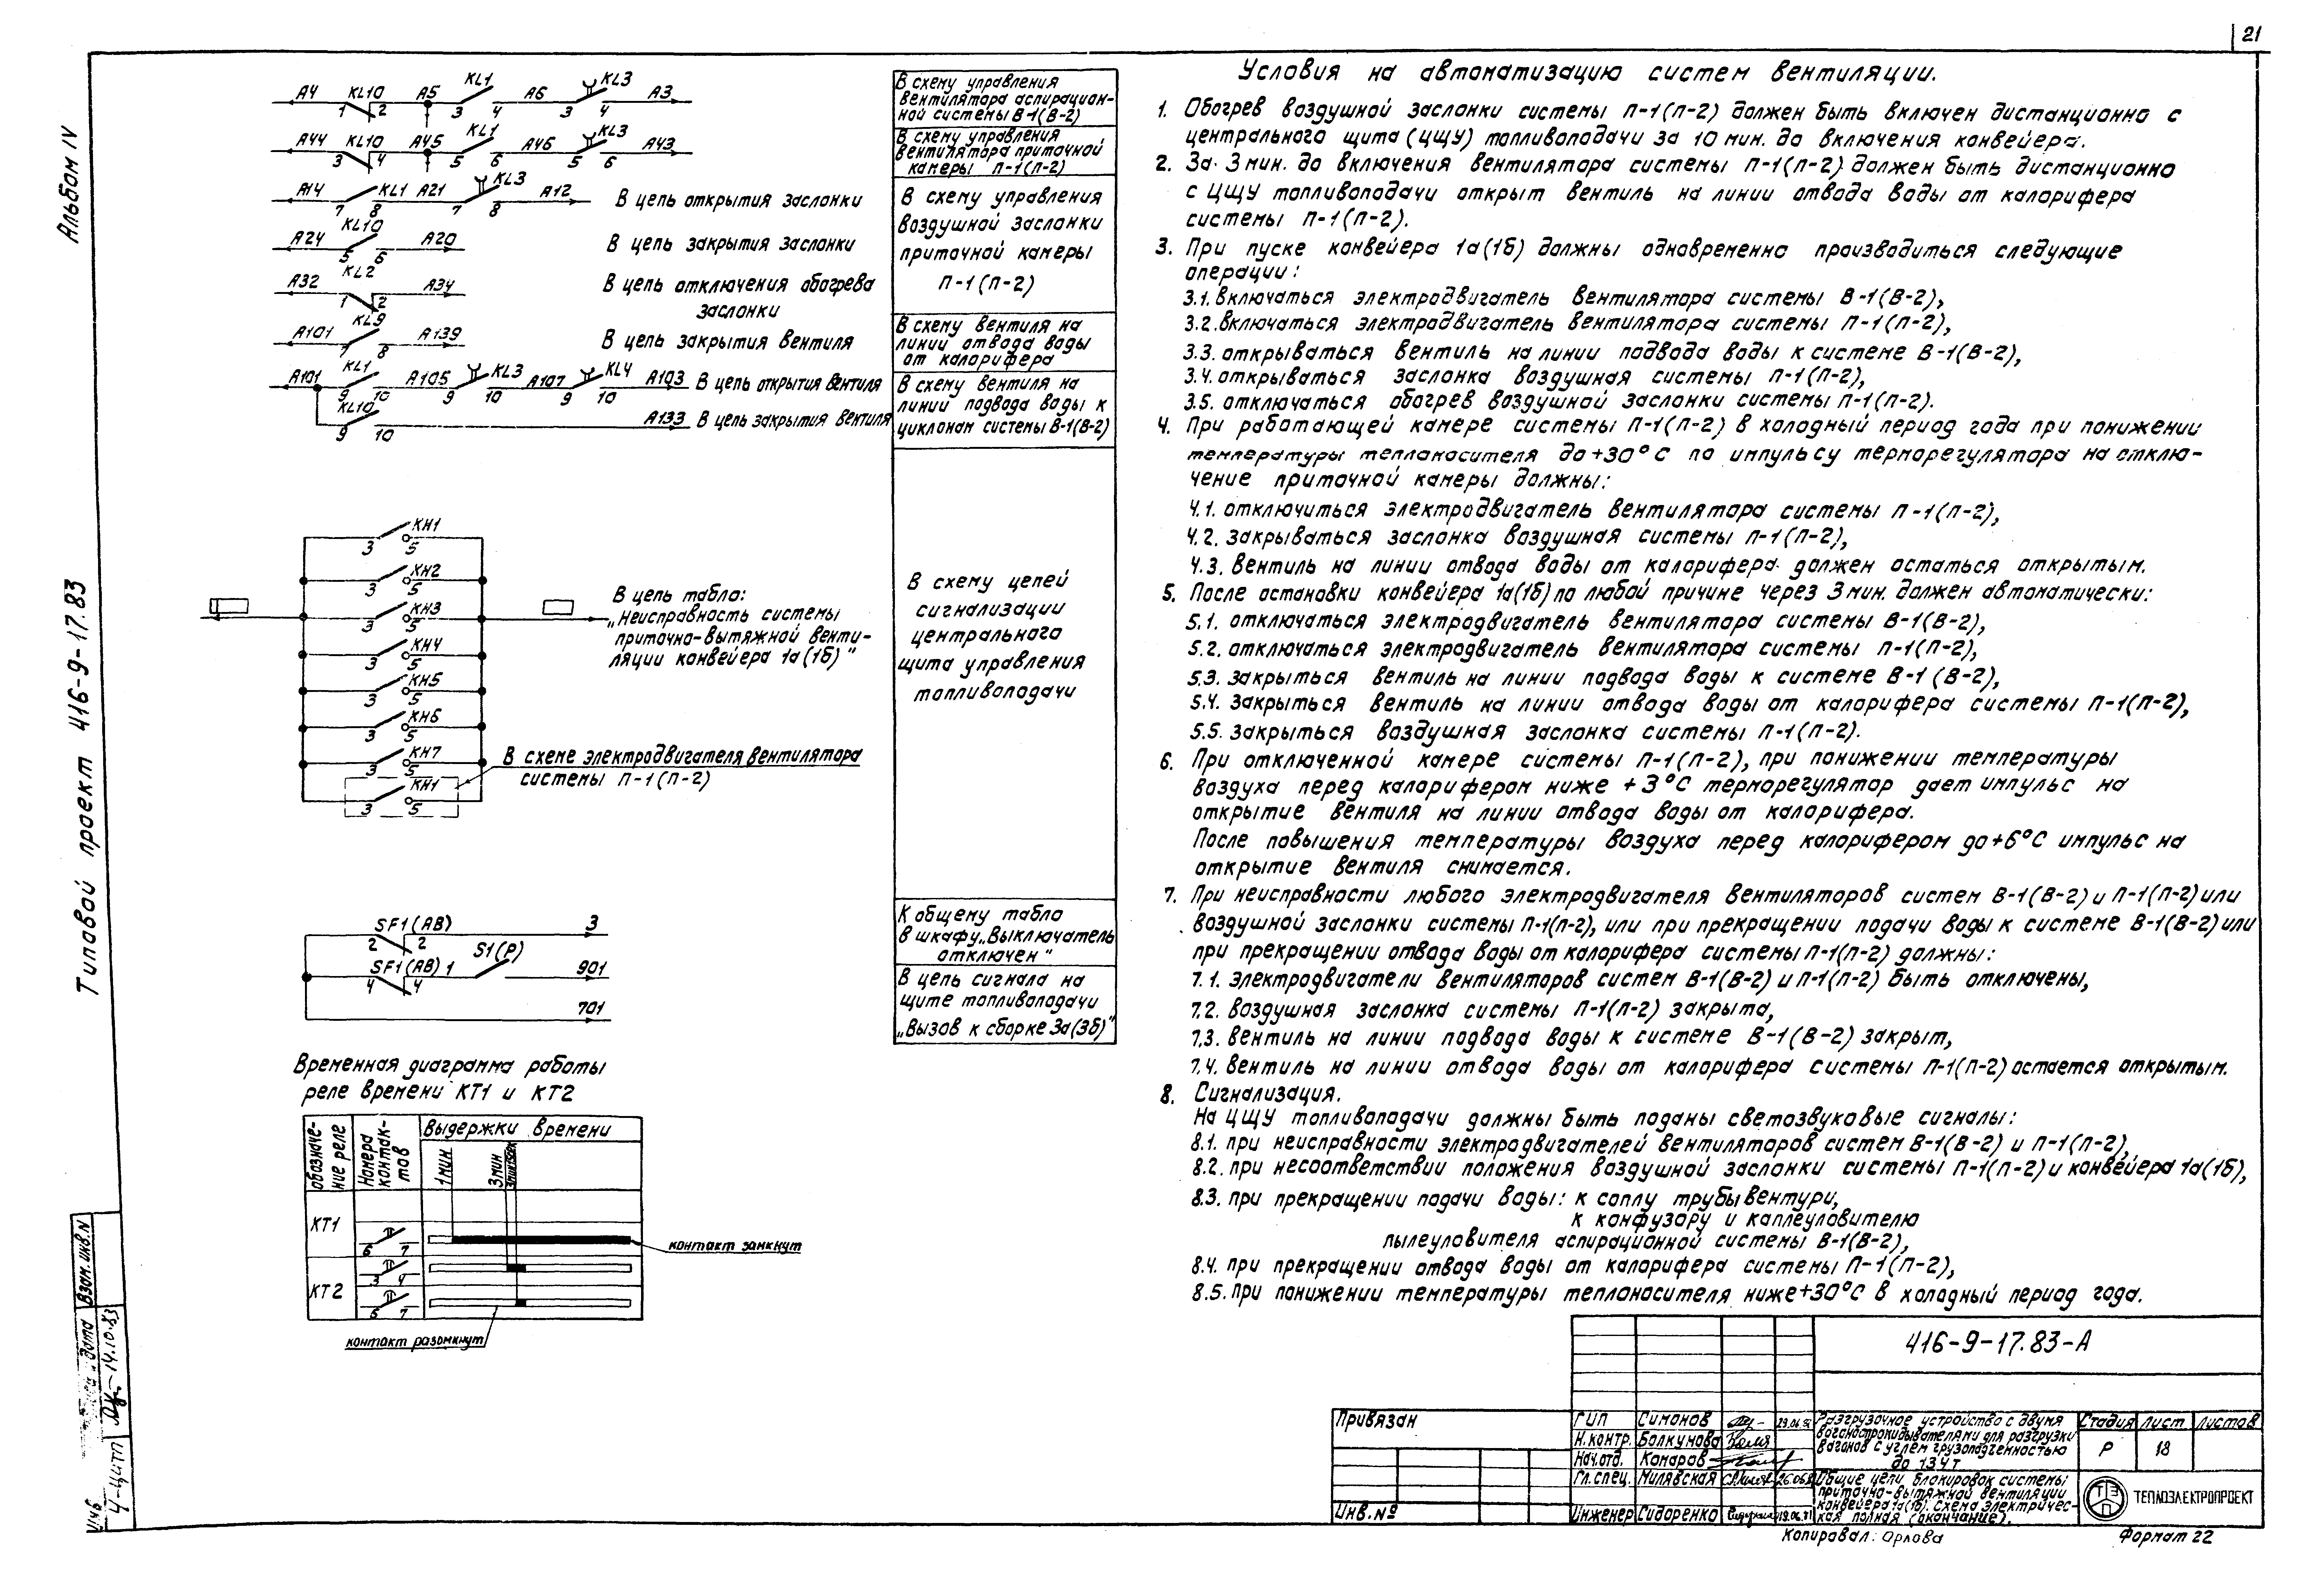 21
Альбом IV
Типовой проект 416-9-17.83
А4 KL10 А5 KL1 А6 KL3 А3
1 2 3 4 3 4
А44 KL10 А45 KL1 А46 KL3 А43
3 4 5 6 5 6
А14 KL1 А21 KL3 А12
7 8 7 8
В цепь открытия заслонки
А24 KL10 А20
5 6
В цепь закрытия заслонки
А32 KL2 А34
1 2
В цепь отключения обогрева
заслонки
А101 KL9 А139
7 8
В цепь закрытия вентиля
А101 KL1 А105 KL3 А107 KL4 А103 В цепь открытия вентиля
9 10 9 10 9 10
KL10 А133 В цепь закрытия вентиля
9 10
В схему управления
вентилятора аспирацион-
ной системы В-1(В-2)
В схему управления
вентилятора приточной
камеры П-1(П-2)
В схему управления
воздушной заслонки
приточной камеры
П-1(П-2)
В схему вентиля на
линии отвода воды
от калорифера
В схему вентиля на
линии подвода воды к
циклонам системы В-1(В-2)
КН1
3 5
КН2
3 5
КН3
3 5
КН4
3 5
КН5
3 5
КН6
3 5
КН7
3 5
КН1
3 5
В цепь табло:
„Неисправность системы
приточно-вытяжной венти-
ляции конвейера 1а(1б)"
В схеме электродвигателя вентилятора
системы П-1(П-2)
В схему цепей
сигнализации
центрального
щита управления
топливоподачи
SF1(АВ) 3
2 2
SF1(АВ) 1 S1(Р) 901
4 4
701
К общему табло
в шкафу „Выключатель
отключен"
В цепь сигнала на
щите топливоподачи
„Вызов к сборке 3а(3б)"
Временная диаграмма работы
реле времени КТ1 и КТ2
обозначе-
ние реле
Номера
контак-
тов
Выдержки времени
1мин
3мин
КТ1
6 7
контакт замкнут
КТ2
3 4
6 7
контакт разомкнут
Условия на автоматизацию систем вентиляции.
1. Обогрев воздушной заслонки системы П-1(П-2) должен быть включен дистанционно с
центрального щита (ЦЩУ) топливоподачи за 10 мин. до включения конвейера.
2. За 3 мин. до включения вентилятора системы П-1(П-2) должен быть дистанционно
с ЦЩУ топливоподачи открыт вентиль на линии отвода воды от калорифера
системы П-1(П-2).
3. При пуске конвейера 1а(1б) должны одновременно производиться следующие
операции:
3.1. включаться электродвигатель вентилятора системы В-1(В-2),
3.2. включаться электродвигатель вентилятора системы П-1(П-2),
3.3. открываться вентиль на линии подвода воды к системе В-1(В-2),
3.4. открываться заслонка воздушная системы П-1(П-2),
3.5. отключаться обогрев воздушной заслонки системы П-1(П-2).
4. При работающей камере системы П-1(П-2) в холодный период года при понижении
температуры теплоносителя до +30°С по импульсу терморегулятора на отклю-
чение приточной камеры должны:
4.1. отключиться электродвигатель вентилятора системы П-1(П-2),
4.2. закрываться заслонка воздушная системы П-1(П-2),
4.3. вентиль на линии отвода воды от калорифера должен остаться открытым.
5. После остановки конвейера 1а(1б) по любой причине через 3 мин. должен автоматически:
5.1. отключаться электродвигатель вентилятора системы В-1(В-2),
5.2. отключаться электродвигатель вентилятора системы П-1(П-2),
5.3. закрыться вентиль на линии подвода воды к системе В-1(В-2),
5.4. закрыться вентиль на линии отвода воды от калорифера системы П-1(П-2),
5.5. закрыться воздушная заслонка системы П-1(П-2).
6. При отключенной камере системы П-1(П-2), при понижении температуры
воздуха перед калорифером ниже +3°С терморегулятор дает импульс на
открытие вентиля на линии отвода воды от калорифера.
После повышения температуры воздуха перед калорифером до +6°С импульс на
открытие вентиля снимается.
7. При неисправности любого электродвигателя вентиляторов систем В-1(В-2) и П-1(П-2) или
воздушной заслонки системы П-1(П-2), или при прекращении подачи воды к системе В-1(В-2) или
при прекращении отвода воды от калорифера системы П-1(П-2) должны:
7.1. электродвигатели вентиляторов систем В-1(В-2) и П-1(П-2) быть отключены,
7.2. воздушная заслонка системы П-1(П-2) закрыта,
7.3. вентиль на линии подвода воды к системе В-1(В-2) закрыт,
7.4. вентиль на линии отвода воды от калорифера системы П-1(П-2) остается открытым.
8. Сигнализация.
На ЦЩУ топливоподачи должны быть поданы светозвуковые сигналы:
8.1. при неисправности электродвигателей вентиляторов систем В-1(В-2) и П-1(П-2),
8.2. при несоответствии положения воздушной заслонки системы П-1(П-2) и конвейера 1а(1б),
8.3. при прекращении подачи воды: к соплу трубы Вентури,
к конфузору и каплеуловителю
пылеуловителя аспирационной системы В-1(В-2),
8.4. при прекращении отвода воды от калорифера системы П-1(П-2),
8.5. при понижении температуры теплоносителя ниже +30°С в холодный период года.
416-9-17.83-А
Привязан
Инв.№
ГИП Симонов
Н.контр. Болкунова
Нач.отд. Комаров
Гл.спец. Милявская
Инженер Сидоренко
Разгрузочное устройство с двумя
вагоноопрокидывателями для разгрузки
вагонов с углем грузоподъемностью
до 134т
Стадия Лист Листов
Р 18
Общие цепи блокировок системы
приточно-вытяжной вентиляции
конвейера 1а(1б). Схема электричес-
кая полная (окончание).
ТЭП
ТЕПЛОЭЛЕКТРОПРОЕКТ
Копировал: Орлова
Формат 22
Взам. инв. N
14.10.83